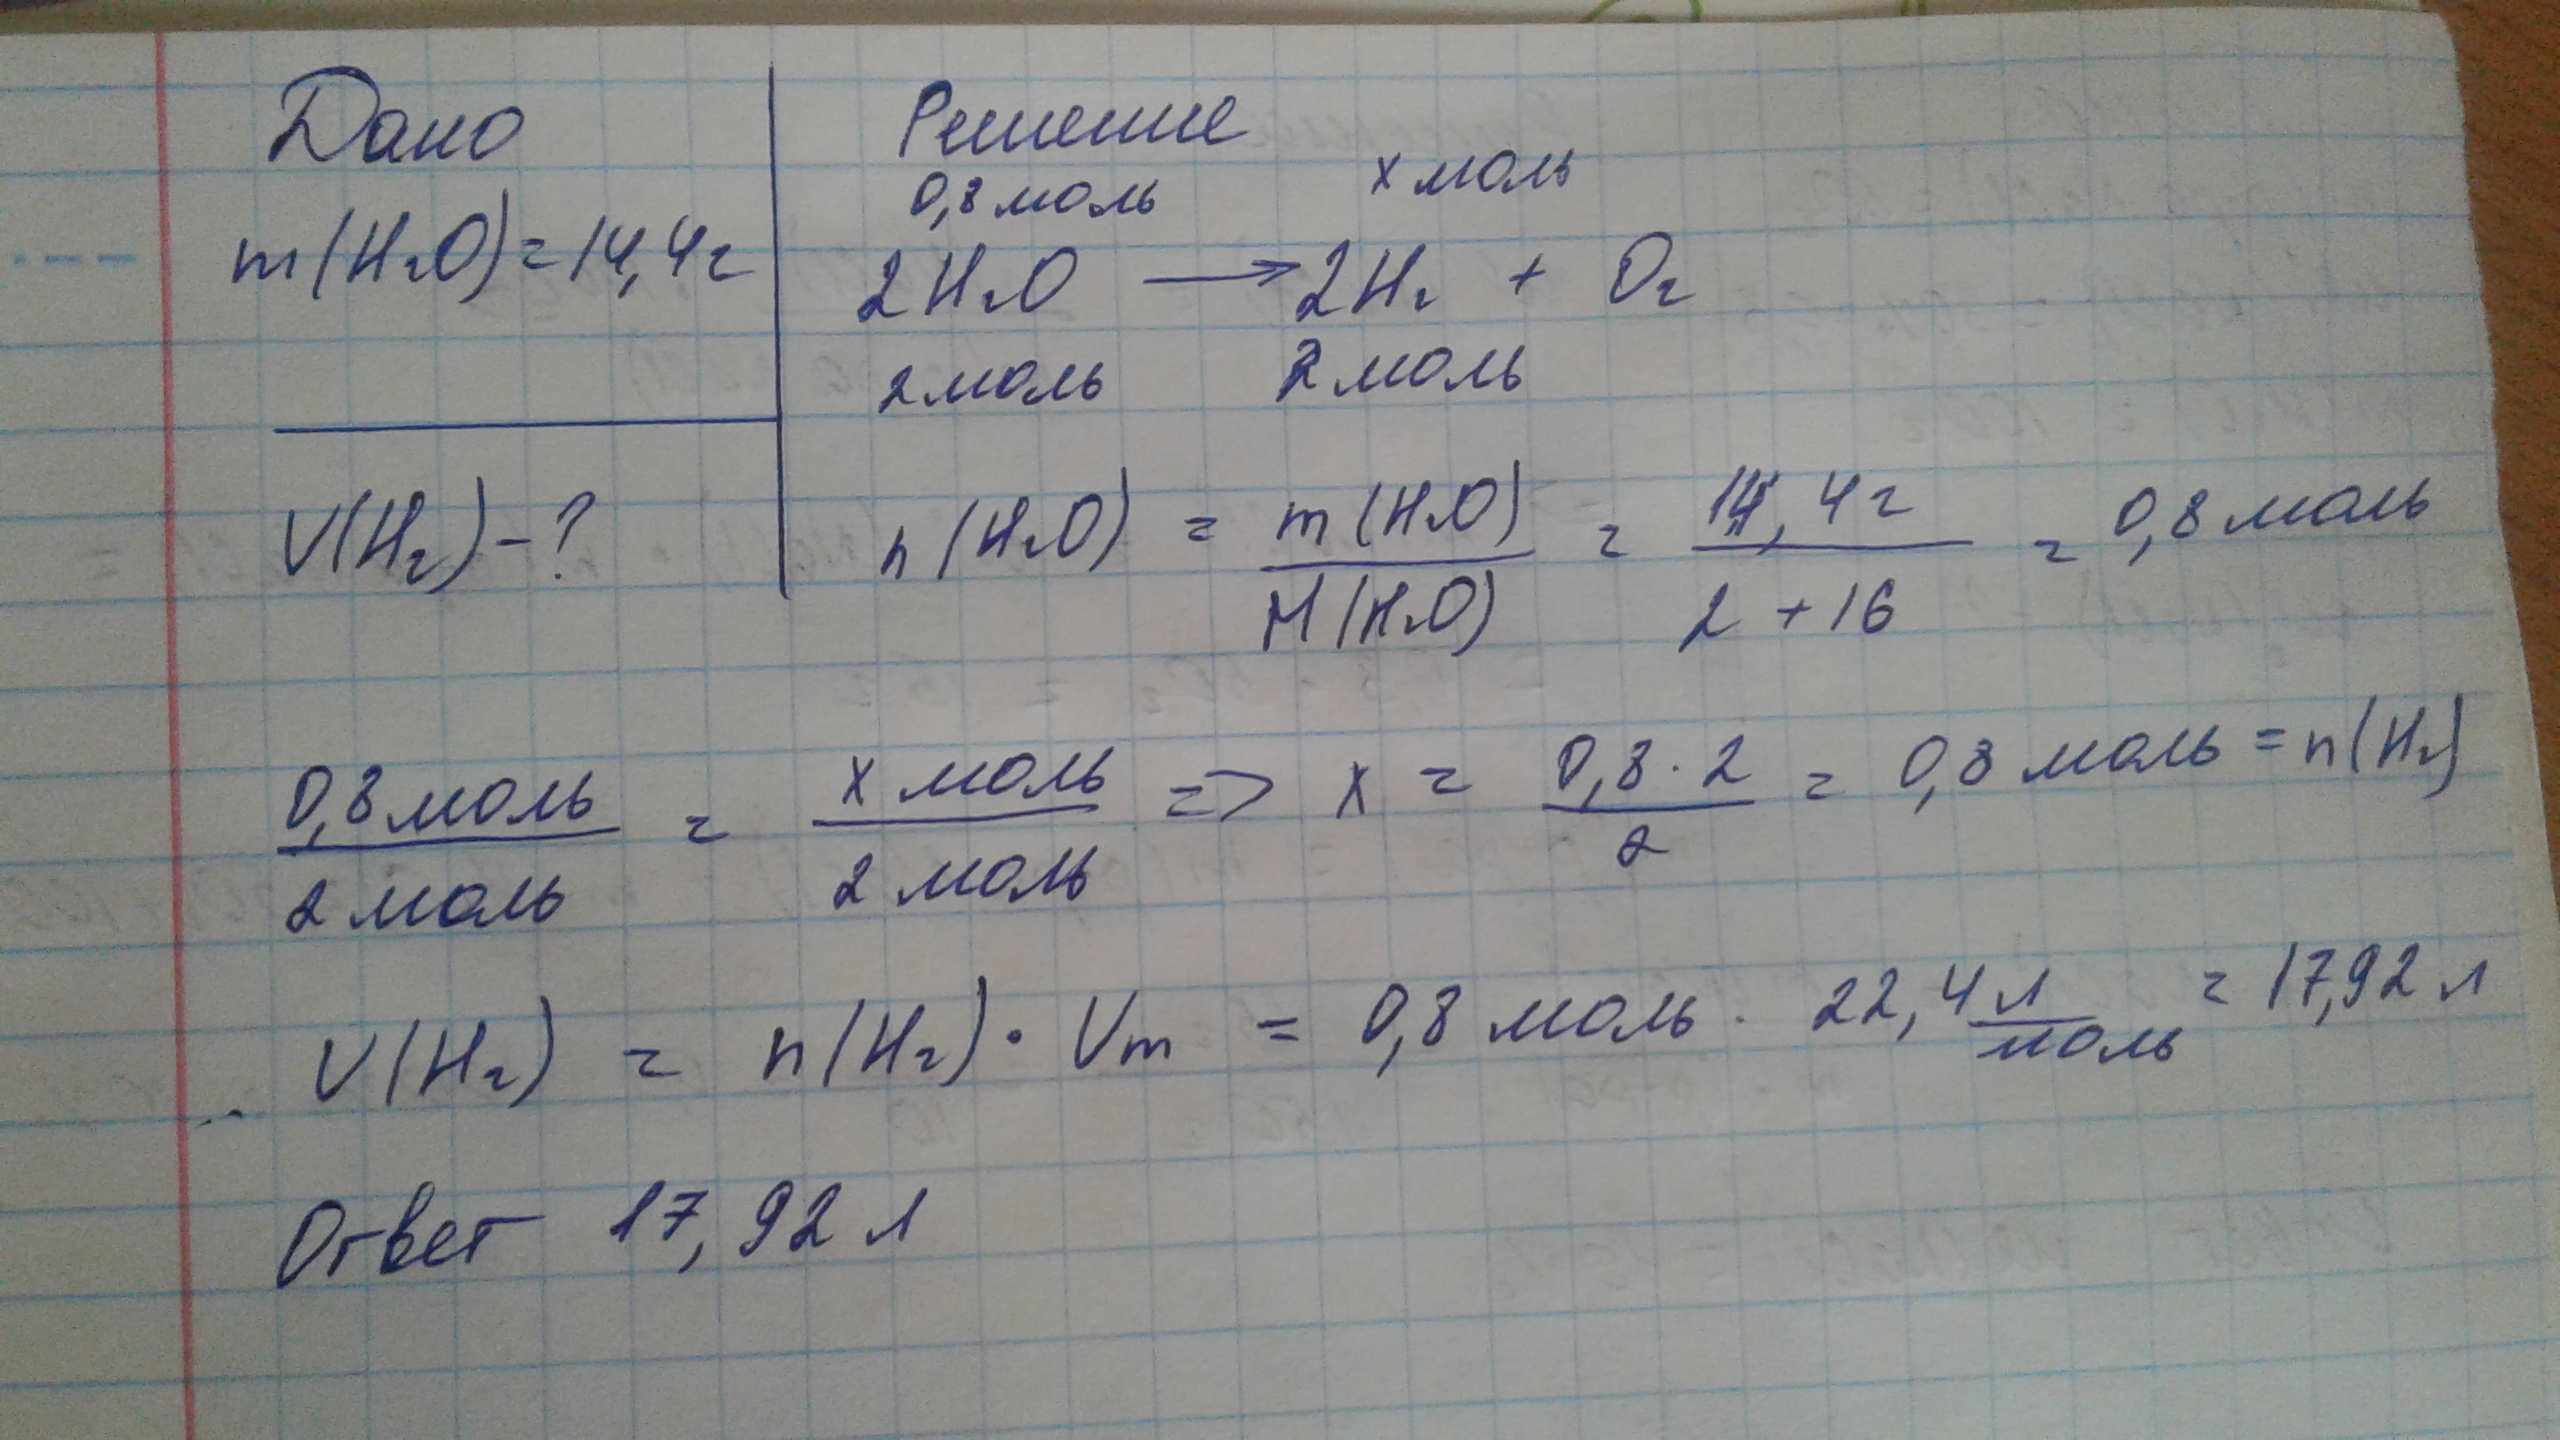 Дано
m(H₂O)=14,4г
V(H₂)-?
Решение
0,8моль x моль
2H₂O → 2H₂ + O₂
2моль 2моль
n(H₂O) = m(H₂O)/M(H₂O) = 14,4г/2+16 = 0,8моль
0,8моль/2моль = x моль/2 моль => x = 0,8·2/2 = 0,8 моль = n(H₂)
V(H₂) = n(H₂)·Vm = 0,8 моль · 22,4 л/моль = 17,92 л
Ответ 17,92 л